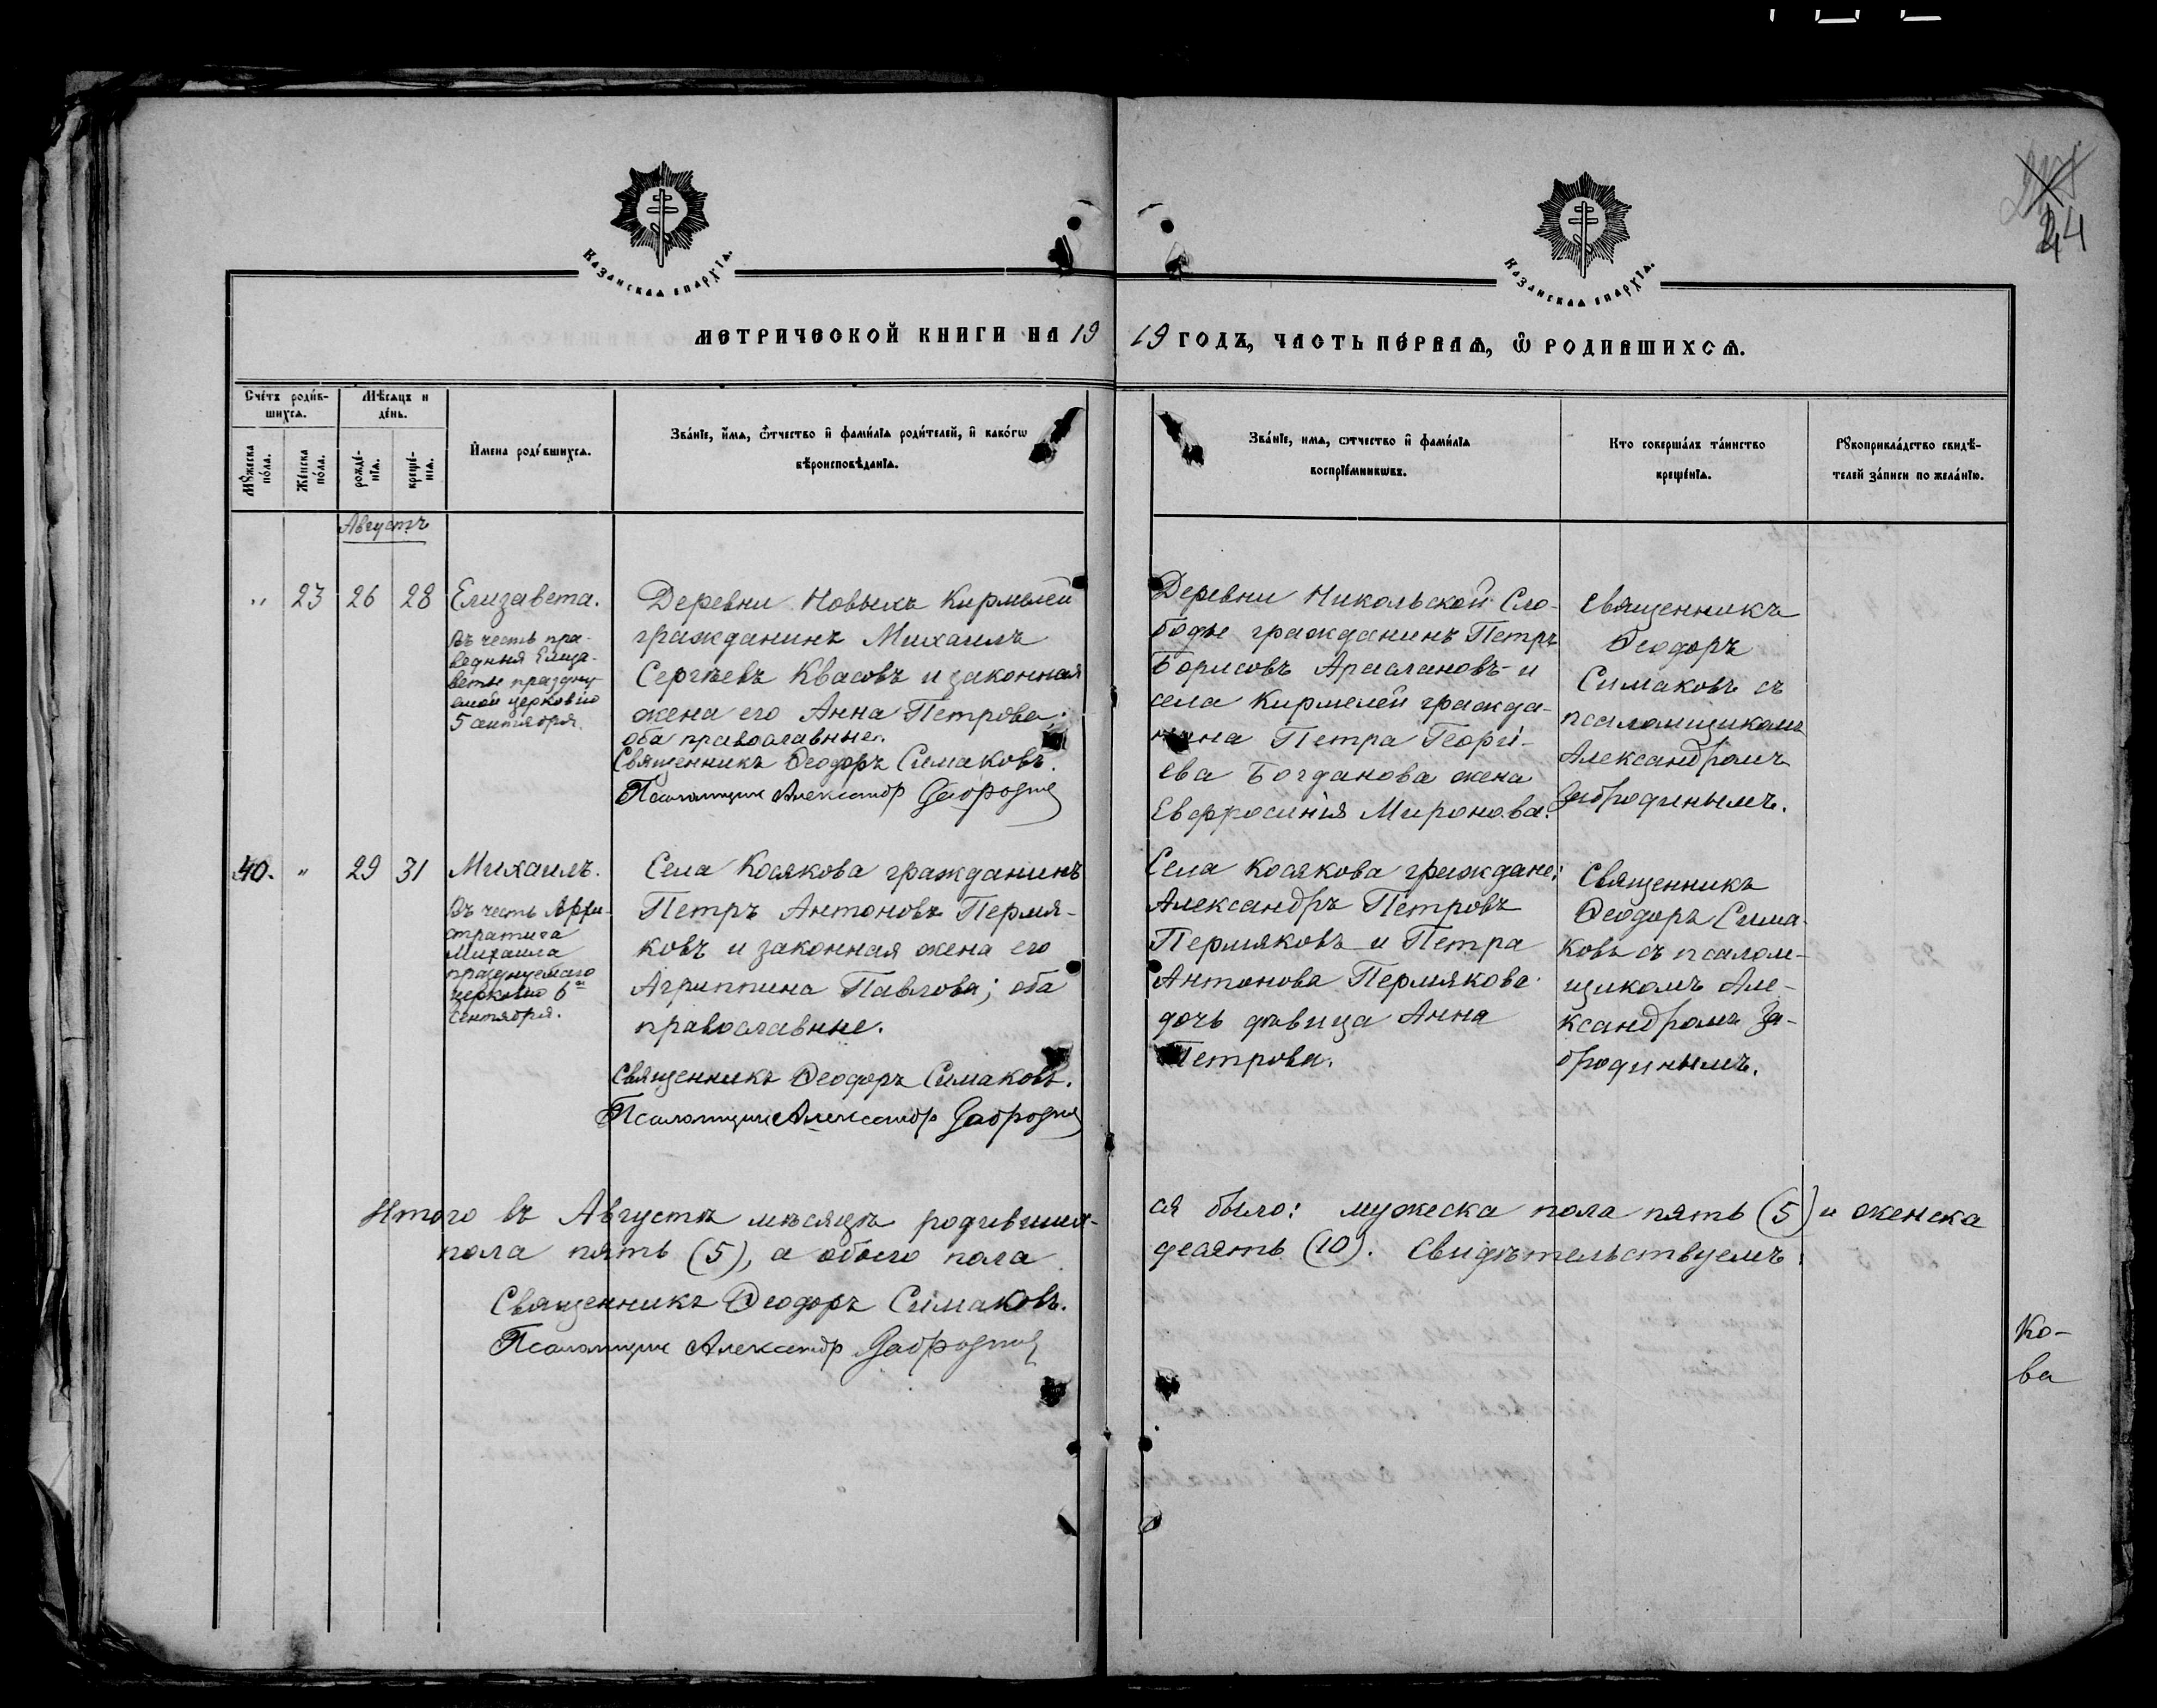 24
Казанская епархїа.
Казанская епархїа.
Метрической книги на 1919 годъ, часть первая, ѡ родившихся.
Счетъ родив-
шихся.
Мѣсяцъ и
день.
Мужеска
пола.
Женска
пола.
рожде-
нїя.
креще-
нїя.
Имена родившихся.
Званїе, имя, ѻтчество и фамилїя родителей, и какогѡ
вѣроисповѣданїя.
Званїе, имя, ѻтчество и фамилїя
воспрїемникѡвъ.
Кто совершалъ таинство
крещенїя.
Рукоприкладство свидѣ-
телей записи по желанїю.
Августъ
„ 23 26 28
Елизавета.
Въ честь пра-
ведныя Елиза-
веты праздну-
емой церковію
5 сентября.
Деревни Новыхъ Кирмелей
гражданинъ Михаилъ
Сергѣевъ Квасовъ и законная
жена его Анна Петрова;
оба православные.
Священникъ Ѳеодоръ Симаковъ.
Псаломщик Александр Забродин
Деревни Никольской Сло-
боды гражданинъ Петръ
Борисовъ Арслановъ и
села Кирмелей гражда-
нина Петра Георгі-
ева Богданова жена
Евфросинія Миронова.
Священникъ
Ѳеодоръ
Симаковъ съ
псаломщикомъ
Александромъ
Забродинымъ.
40. „ 29 31
Михаилъ.
Въ честь Архи-
стратига
Михаила
празднуемаго
церковію 6го
сентября.
Села Косякова гражданинъ
Петръ Антоновъ Пермя-
ковъ и законная жена его
Агриппина Павлова; оба
православные.
Священникъ Ѳеодоръ Симаковъ.
Псаломщик Александр Забродин
Села Косякова граждане:
Александръ Петровъ
Пермяковъ и Петра
Антонова Пермякова
дочь дѣвица Анна
Петрова.
Священникъ
Ѳеодоръ Сима-
ковъ съ псалом-
щикомъ Але-
ксандромъ За-
бродинымъ.
Итого въ Августѣ мѣсяцѣ родивших-
ся было: мужеска пола пять (5) и женска
пола пять (5), а обоего пола
десять (10). Свидѣтельствуемъ:
Священникъ Ѳеодоръ Симаковъ.
Псаломщик Александр Забродин
Ко-
ва